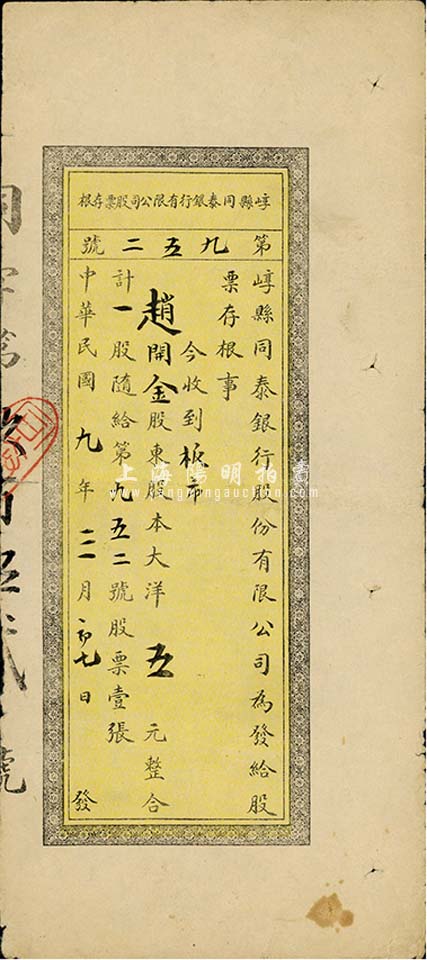 崞縣同泰銀行有限公司股票存根
第九五二號
崞縣同泰銀行股份有限公司為發給股
票存根事
今收到板市
趙開金股東股本大洋五元整合
計一股隨給第九五二號股票壹張
中華民國九年三月初七日發
上海陽明拍賣